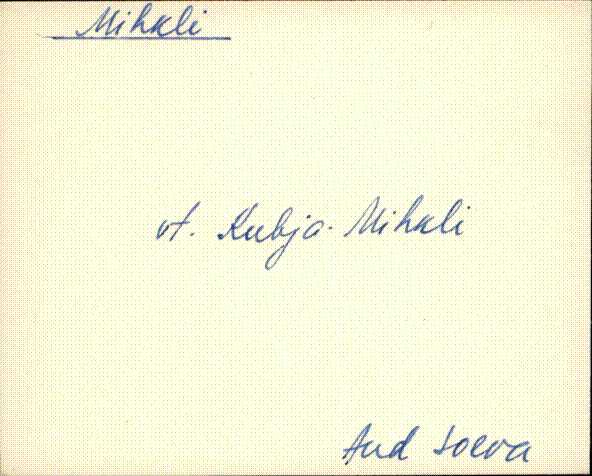 Mihkli
vt. Kubja-Mihkli
Aud Soeva